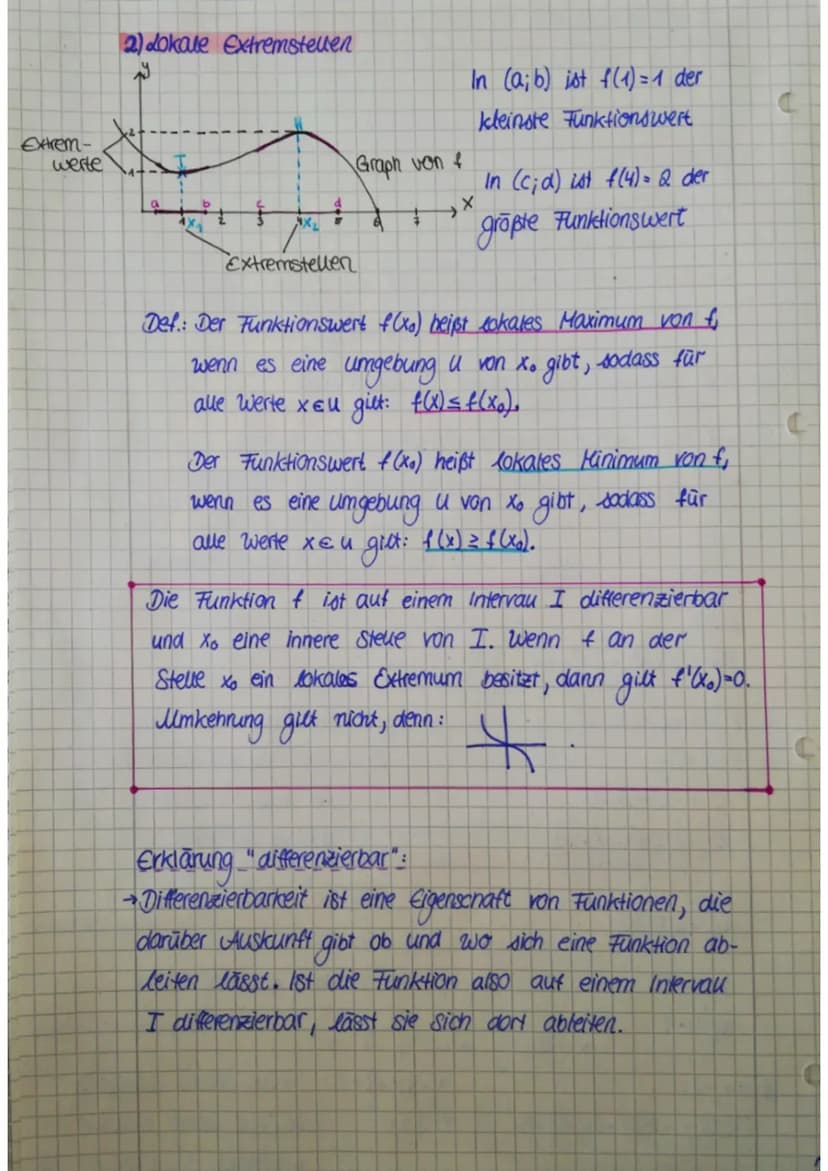 2) Lokale Extremstellen
y
In (a;b) ist f(1)=1 der
kleinste Funktionswert
Extrem-
werte
2
1
T
H
Graph von f
In (c;d) ist f(4)=2 der
größte Funktionswert
a b c d
1 x₁ 2 3 4 x₂ 5 6 7 x
Extremstellen
Def.: Der Funktionswert f(x₀) heißt lokales Maximum von f,
wenn es eine Umgebung U von x₀ gibt, sodass für
alle Werte x∈U gilt: f(x)≤f(x₀).
Der Funktionswert f(x₀) heißt lokales Minimum von f,
wenn es eine Umgebung U von x₀ gibt, sodass für
alle Werte x∈U gilt: f(x)≥f(x₀).
Die Funktion f ist auf einem Intervall I differenzierbar
und x₀ eine innere Stelle von I. Wenn f an der
Stelle x₀ ein lokales Extremum besitzt, dann gilt f'(x₀)=0.
Umkehrung gilt nicht, denn:
Erklärung "differenzierbar":
→Differenzierbarkeit ist eine Eigenschaft von Funktionen, die
darüber Auskunft gibt ob und wo sich eine Funktion ab-
leiten lässt. Ist die Funktion also auf einem Intervall
I differenzierbar, lässt sie sich dort ableiten.